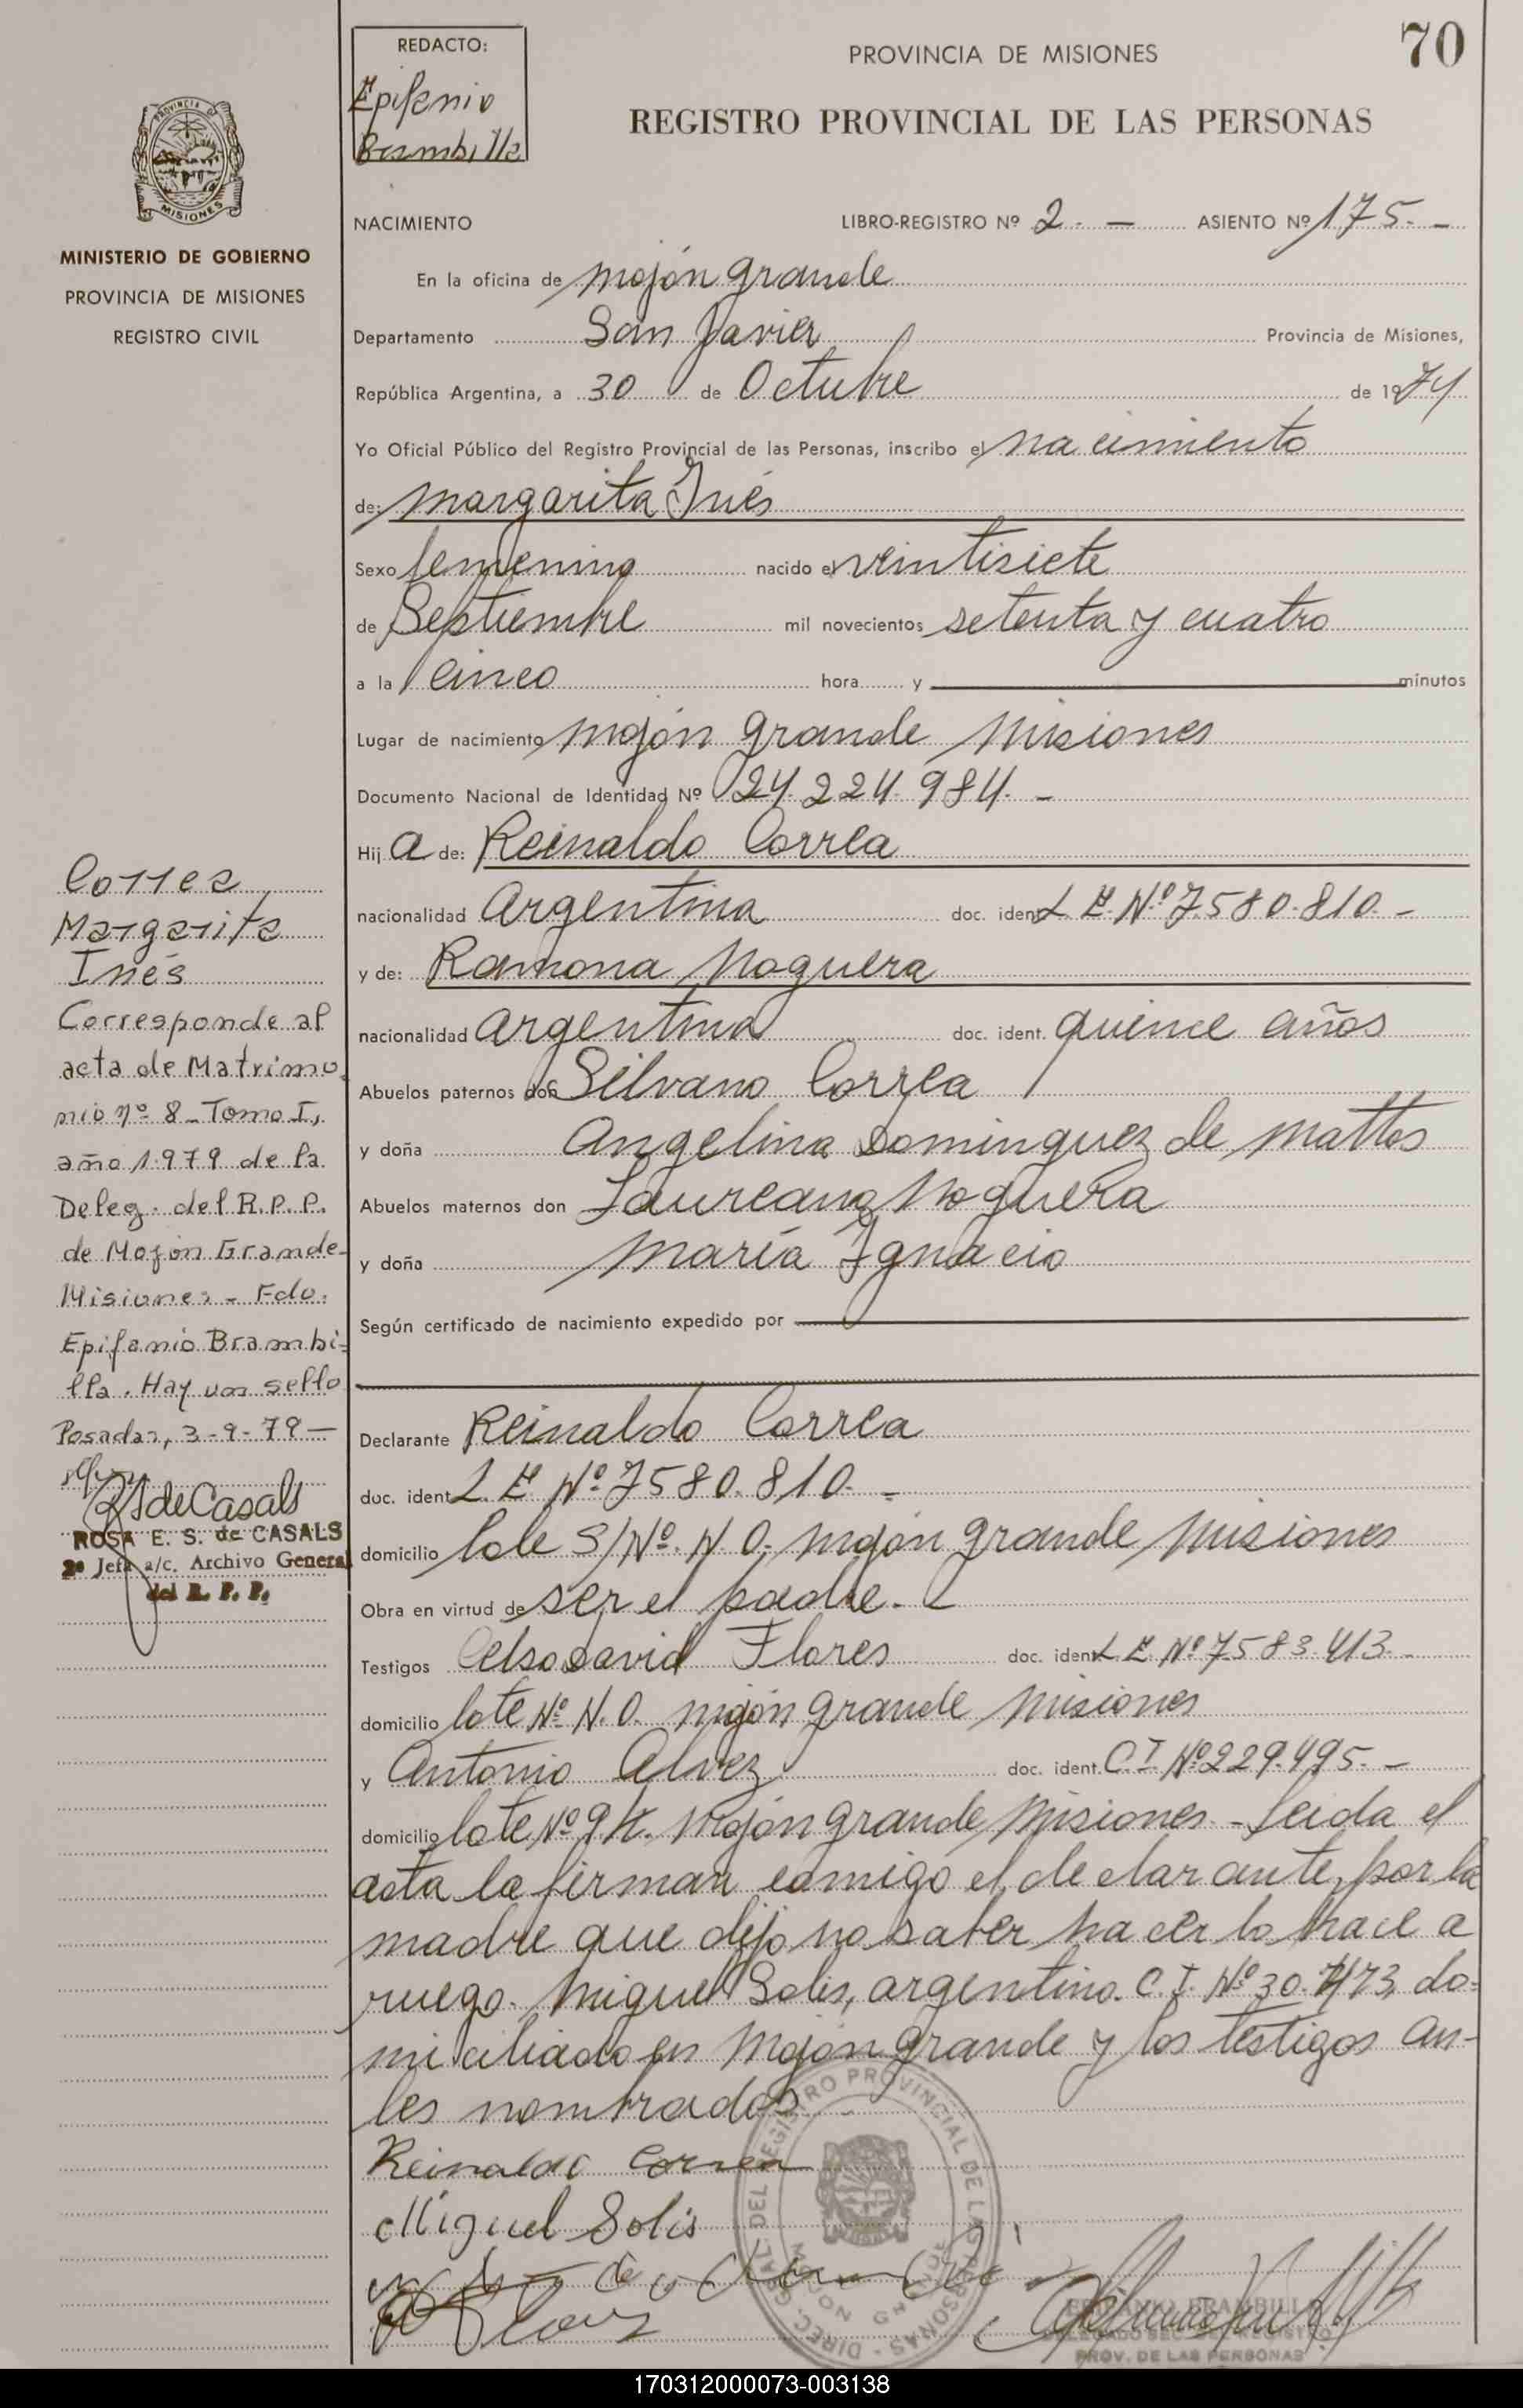 70
REDACTO:
Epifanio
Brambilla
PROVINCIA DE MISIONES
REGISTRO PROVINCIAL DE LAS PERSONAS
PROVINCIA DE
MISIONES
MINISTERIO DE GOBIERNO
PROVINCIA DE MISIONES
REGISTRO CIVIL
NACIMIENTO LIBRO-REGISTRO Nº 2.- ASIENTO Nº 175.-
En la oficina de Mojón Grande
Departamento San Javier Provincia de Misiones,
República Argentina, a 30 de Octubre de 1974
Yo Oficial Público del Registro Provincial de las Personas, inscribo el nacimiento
de: Margarita Inés
Sexo femenino nacido el veintisiete
de Septiembre mil novecientos setenta y cuatro
a la cinco hora y minutos
Lugar de nacimiento Mojón Grande Misiones
Documento Nacional de Identidad Nº 24.224.984.-
Hij a de: Reinaldo Correa
nacionalidad Argentina doc. ident. L.E. Nº 7.580.810.-
y de: Ramona Noguera
nacionalidad Argentina doc. ident. quince años
Abuelos paternos don Silvano Correa
y doña Angelina Dominguez de Mattos
Abuelos maternos don Laureano Noguera
y doña María Ignacio
Según certificado de nacimiento expedido por
Declarante Reinaldo Correa
doc. ident. L.E. Nº 7580.810.-
domicilio lote S/Nº. N.O. Mojón Grande Misiones
Obra en virtud de ser el padre.
Testigos Celso David Flores doc. ident. L.E. Nº 7583.413.-
domicilio lote Nº N.O. Mojón Grande Misiones
y Antonio Alvez doc. ident. C.I. Nº 229.495.-
domicilio lote Nº 9 Mojón Grande Misiones.- Leida el
acta la firman comigo el declarante, por la
madre que dijo no saber hacer lo hace a
ruego. Miguel Solis, argentino. C.I. Nº do-
miciliado en Mojón Grande y los testigos an-
tes nombrados
Reinaldo Correa
Miguel Solis
Correa
Margarita
Inés
Corresponde al
acta de Matrimo
nio nº 8 - Tomo I,
año 1.979 de la
Deleg. del R.P.P.
de Mojón Grande-
Misiones - Fdo.
Epifanio Brambi-
lla. Hay un sello
Posadas, 3-9-79-
RSdeCasals
ROSA E. S. de CASALS
2ª Jefa a/c. Archivo General
del R. P. P.
DIREC. GRAL. DEL REGISTRO PROVINCIAL DE LAS PERSONAS
MOJON GRANDE
EPIFANIO BRAMBILLA
PROV. DE LAS PERSONAS
170312000073-003138